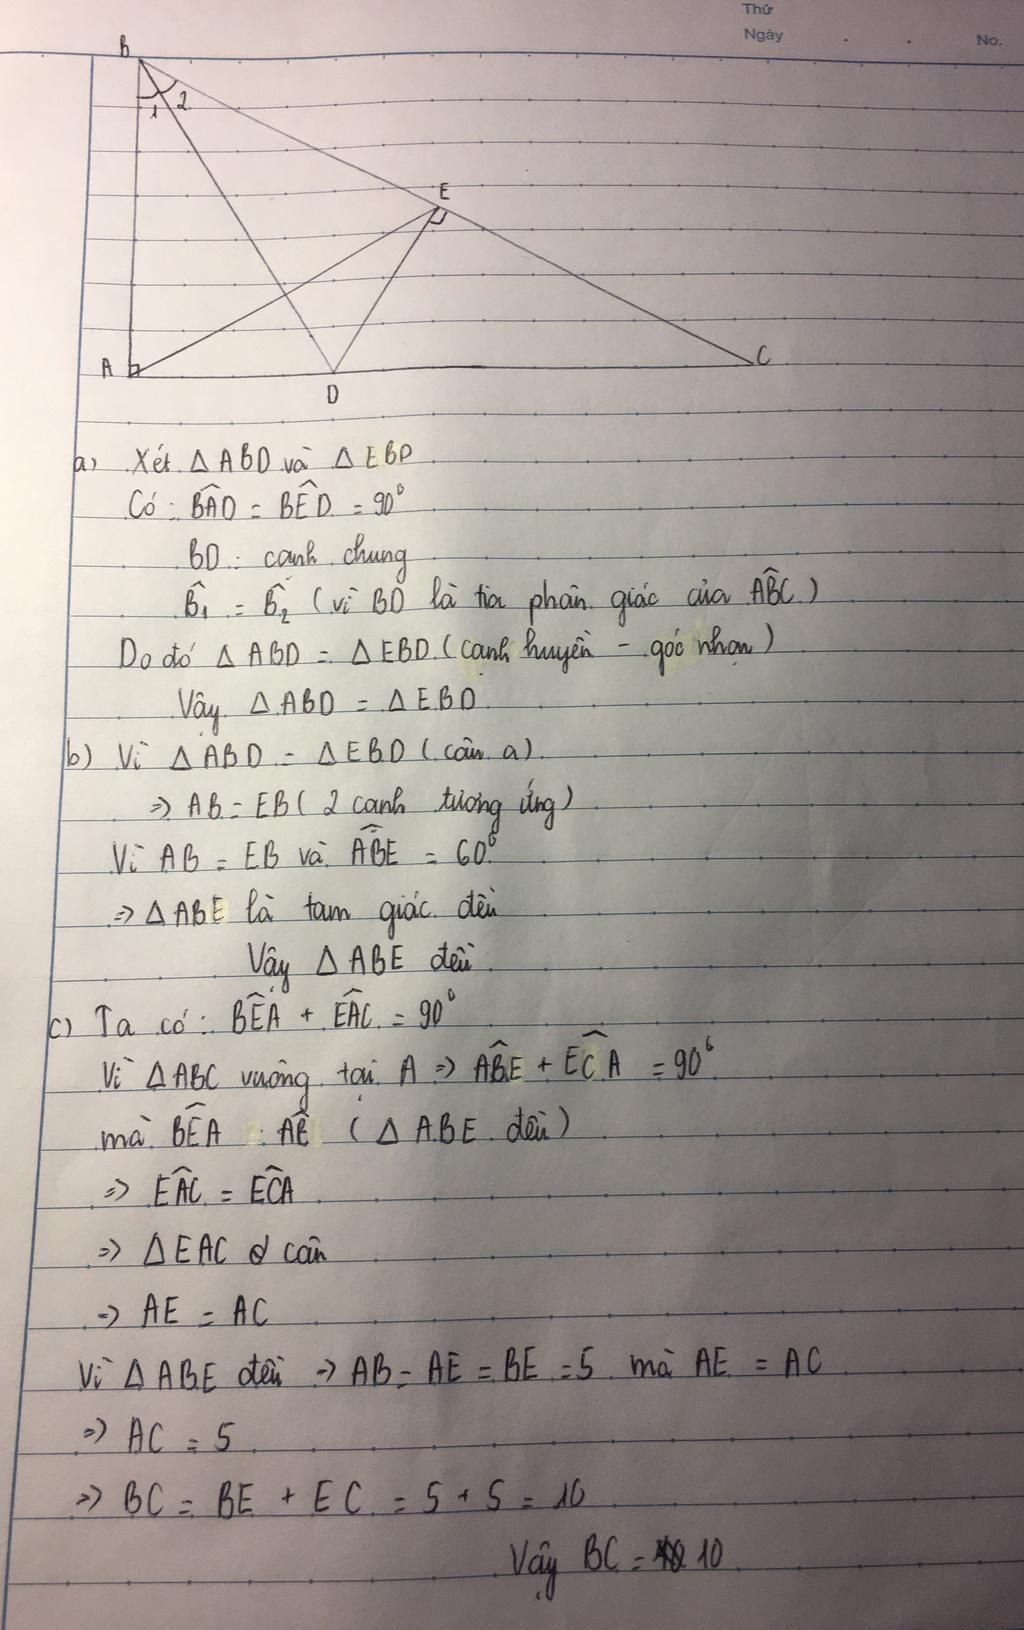 Thứ
Ngày . . No.
B
1 2
E
A
D
C
a) Xét Δ ABD và Δ EBD
Có : BÂD = BÊD = 90°
BD : cạnh chung
B̂₁ = B̂₂ ( vì BD là tia phân giác của AB̂C )
Do đó Δ ABD = Δ EBD ( cạnh huyền - góc nhọn )
Vậy Δ ABD = Δ EBD
b) Vì Δ ABD = Δ EBD ( câu a )
=> AB = EB ( 2 cạnh tương ứng )
Vì AB = EB và AB̂E = 60°
=> Δ ABE là tam giác đều
Vậy Δ ABE đều
c) Ta có : BÊA + EÂC = 90°
Vì ΔABC vuông tại A => AB̂E + EĈA = 90°
mà BÊA = ( Δ ABE đều )
=> EÂC = EĈA
=> ΔEAC cân
=> AE = AC
Vì Δ ABE đều => AB = AE = BE = 5 mà AE = AC
=> AC = 5
=> BC = BE + EC = 5 + 5 = 10
Vậy BC = 10